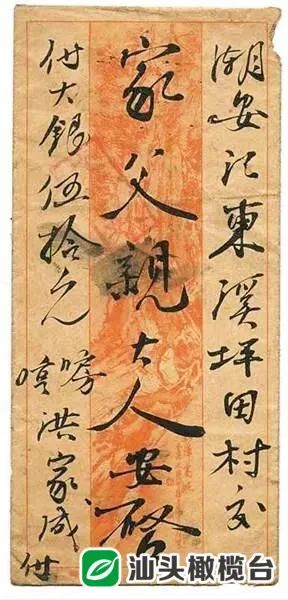 潮安江東溪坪田村交
家父親大人安啓
付大銀伍拾元
嗙
洪家咸付
汕头橄榄台